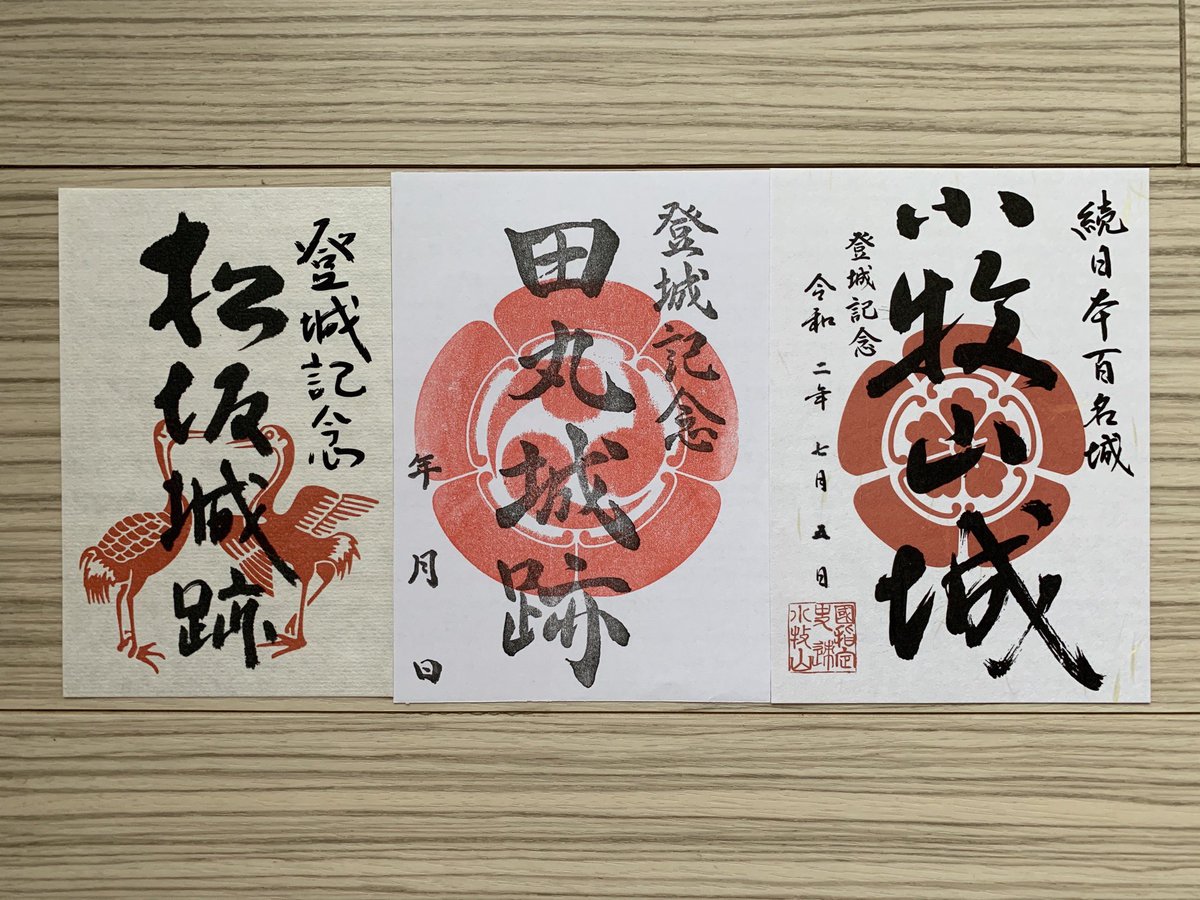 登城記念
松坂城跡
登城記念
田丸城跡
年 月 日
続日本百名城
小牧山城
登城記念
令和 二年 七月 五日
國指定
史跡
小牧山